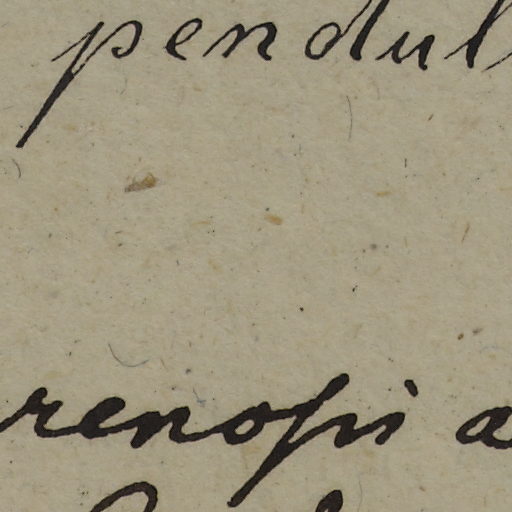 pendul
renosis a